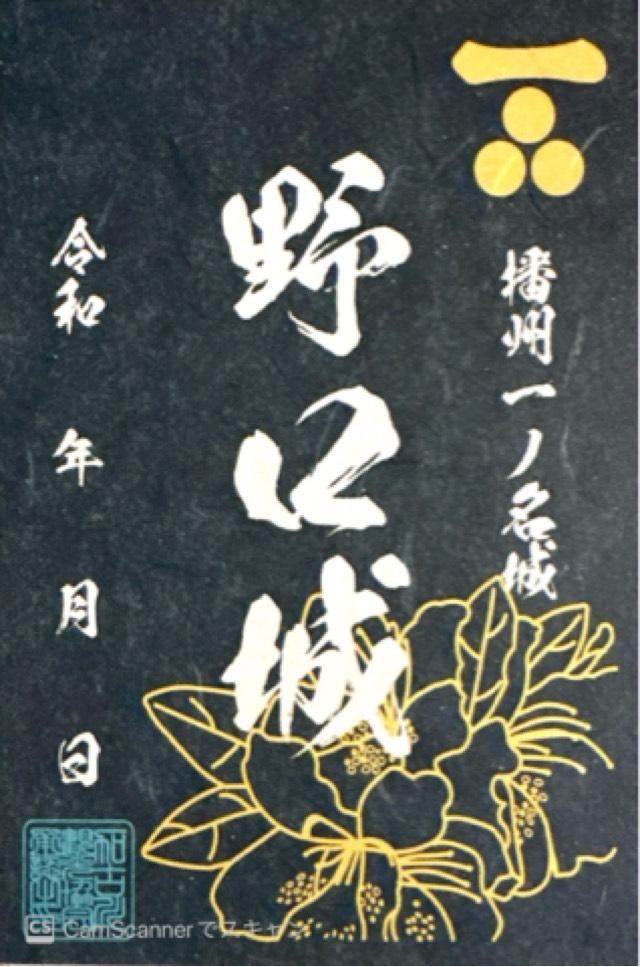 播州一ノ名城
野口城
令和 年 月 日
CS CamScannerでスキャン